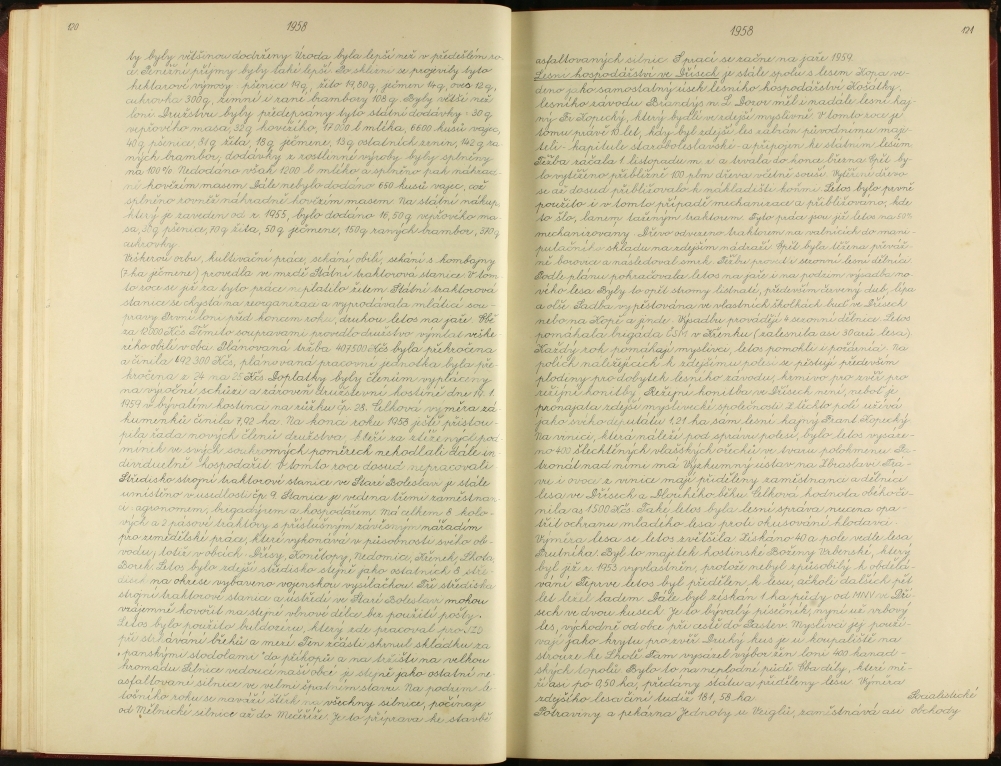 120
1958
ty byly většinou dodrženy. Úroda byla lepší než v předešlém ro-
ce. Peněžní příjmy byly také lepší. Po sklizni se projevily tyto
hektarové výnosy: pšenice 19q, žito 17,80q, ječmen 14q, oves 12q,
cukrovka 300q, zemní a rané brambory 108q. Byly větší než
loni. Družstvu byly předepsány tyto státní dodávky: 30q
vepřového masa, 32q hovězího, 17000 l mléka, 6600 kusů vajec,
40q pšenice, 51q žita, 18q ječmene, 13q ostatních zrnin, 142q ra-
ných brambor, dodávky z rostlinné výroby byly splněny
na 100%. Nedodáno však 1200 l mléka a splněno pak náhrad-
ní hovězím masem. Dále nebylo dodáno 650 kusů vajec, což
splněno rovněž náhradně hovězím masem. Na státní nákup,
který je zaveden od r. 1953, bylo dodáno 16,50q vepřového ma-
sa, 37q pšenice, 70q žita, 50q ječmene, 150q raných brambor, 370q
cukrovky.
Veškerou orbu, kultivační práce, sekání obilí, sekání s kombajny
(7 ha ječmene) provedla ve mzdě Státní traktorová stanice. V tom-
to roce se již za tyto práce neplatilo žitem. Státní traktorová
stanice se chystá na reorganizaci a vyprodávala mláticí sou-
pravy. První loni před koncem roku, druhou letos na jaře. Obě
za 10000 Kčs. Těmito soupravami provedlo družstvo výmlat veške-
rého obilí v obci. Plánovaná tržba 407500 Kčs byla překročena
a činila 492.300 Kčs, plánovaná pracovní jednotka byla pře-
kročena z 24 na 25 Kčs. Doplatky byly členům vypláceny
na výroční schůzi a zároveň družstevní hostině dne 17. 1.
1959 v bývalém hostinci na růžku čp. 28. Celková výměra zá-
humenků činila 7,92 ha. Na konci roku 1958 ještě přistou-
pila řada nových členů družstva, kteří za ztížených pod-
mínek ve svých soukromých poměrech nehodlali dále in-
dividuelně hospodařit. V tomto roce dosud nepracovali.
Středisko strojní traktorové stanice ve Staré Boleslavi je stále
umístěno v usedlosti čp. 9. Stanice je vedena třemi zaměstnan-
ci: agronomem, brigadýrem a hospodářem. Má celkem 8 kolo-
vých a 2 pásové traktory s příslušným závěsným nářadím
pro zemědělské práce, které vykonává v působnosti svého ob-
vodu, totiž v obcích: Dřísy, Konětopy, Nedomice, Křenek, Lhota,
Borek. Letos bylo zdejší středisko stejně jako ostatních 8 stře-
disek na okrese vybaveno vojenskou vysílačkou. Tři střediska
strojní traktorové stanice a ústředí ve Staré Boleslavi mohou
vzájemně hovořit na stejné vlnové délce bez použití pošty.
Letos bylo použito buldozeru, který zde pracoval pro JZD
při strhávání břehů a mezí. Ten zčásti shrnul skládku za
„panskými stodolami“ do příkopů a na hřišti na velkou
hromadu. Silnice vedoucí naší obcí je stejně jako ostatní ne-
asfaltované silnice ve velmi špatném stavu. Na podzim le-
tošního roku se naváží štěrk na všechny silnice, počínaje
od Mělnické silnice až do Mečeříže. Je to příprava ke stavbě
1958
121
asfaltovaných silnic. S prací se začne na jaře 1959.
Lesní hospodářství ve Dřísech je stále spolu s lesem Kopa ve-
deno jako samostatný úsek lesního hospodářství Košátky,
lesního závodu Brandýs n. L. Dozor měl i nadále lesní haj-
ný Fr. Kopecký, který bydlí ve zdejší myslivně. V tomto roce je
tomu právě 10 let, kdy byl zdejší les zabrán původnímu maji-
teli - kapitule staroboleslavské - a připojen ke státním lesům.
Těžba začala 1. listopadu m. r. a trvala do konce března. Opět by-
lo vytěženo přibližně 100 plm dřeva včetně souší. Vytěžené dřevo
se až dosud přibližovalo k nákladišti koňmi. Letos bylo prvně
použito i v tomto případě mechanizace a přibližováno, kde
to šlo, lanem taženým traktorem. Tyto práce jsou již letos na 50%
mechanizovány. Dřevo odvezeno traktorem na valnících do mani-
pulačního skladu na zdejším nádraží. Opět byla těžena převáž-
ně borovice a následoval smrk. Těžbu prováděli sezonní lesní dělníci.
Podle plánu pokračovala letos na jaře i na podzim výsadba no-
vého lesa. Byly to opět stromy listnaté, především červený dub, lípa
a olše. Sadba vypěstována ve vlastních školkách buď ve Dřísech
nebo na Kopě a jinde. Výsadbu provádějí 4 sezonní dělnice. Letos
pomáhala brigáda ČSM v Křenku (zalesnila asi 30 arů lesa).
Každý rok pomáhají myslivci, letos pomohli i požárníci. Na
polích náležejících k zdejšímu polesí se pěstují především
plodiny pro dobytek lesního závodu, krmivo pro zvěř pro
režijní honitby. Režijní honitba ve Dřísech není, neboť je
pronajata zdejší myslivecké společnosti. Z těchto polí užívá
jako svého deputátu 1,21 ha sám lesní hajný Frant. Kopecký.
Na vinici, která náleží pod správu polesí, bylo letos vysáze-
no 400 štěchtěných vlašských ořechů ve tvaru polokmenu. Pa-
tronát nad nimi má Výzkumný ústav na Zbraslavi. Trá-
vu i ovoce z vinice mají přiděleny zaměstnanci a dělníci
lesa ve Dřísech a Dvořákého běhu. Celková hodnota obého či-
nila as 1500 Kčs. Také letos byla lesní správa nucena opa-
třit ochranu mladého lesa proti okusování hlodavci.
Výměra lesa se letos zvětšila. Získáno 40 a pole vedle lesa
Prutníka. Byl to majetek hostinské Boženy Vrbenské, který
byl již r. 1953 vyvlastněn, protože nebyl způsobilý k obdělá-
vání. Teprve letos byl přidělen k lesu, ačkoli dalších pět
let ležel ladem. Dále byl získán 1 ha půdy od MNV ve Dří-
sech ve dvou kusech. Je to bývalý písečník, nyní už vrbový
les, východně od obce při cestě do Pastev. Myslivci jej použí-
vají jako krytu pro zvěř. Druhý kus je u koupaliště na
strouze ke Lhotě. Tam vysázel výbor žen loni 400 kanad-
ských topolů. Bylo to na neplodné půdě. Oba díly, které mě-
ří asi po 0,50 ha, předány státu a přiděleny lesu. Výměra
zdejšího lesa činí tudíž 181,58 ha.
Socialistické
Potraviny a pekárna Jednoty u Weiglů, zaměstnává asi obchody